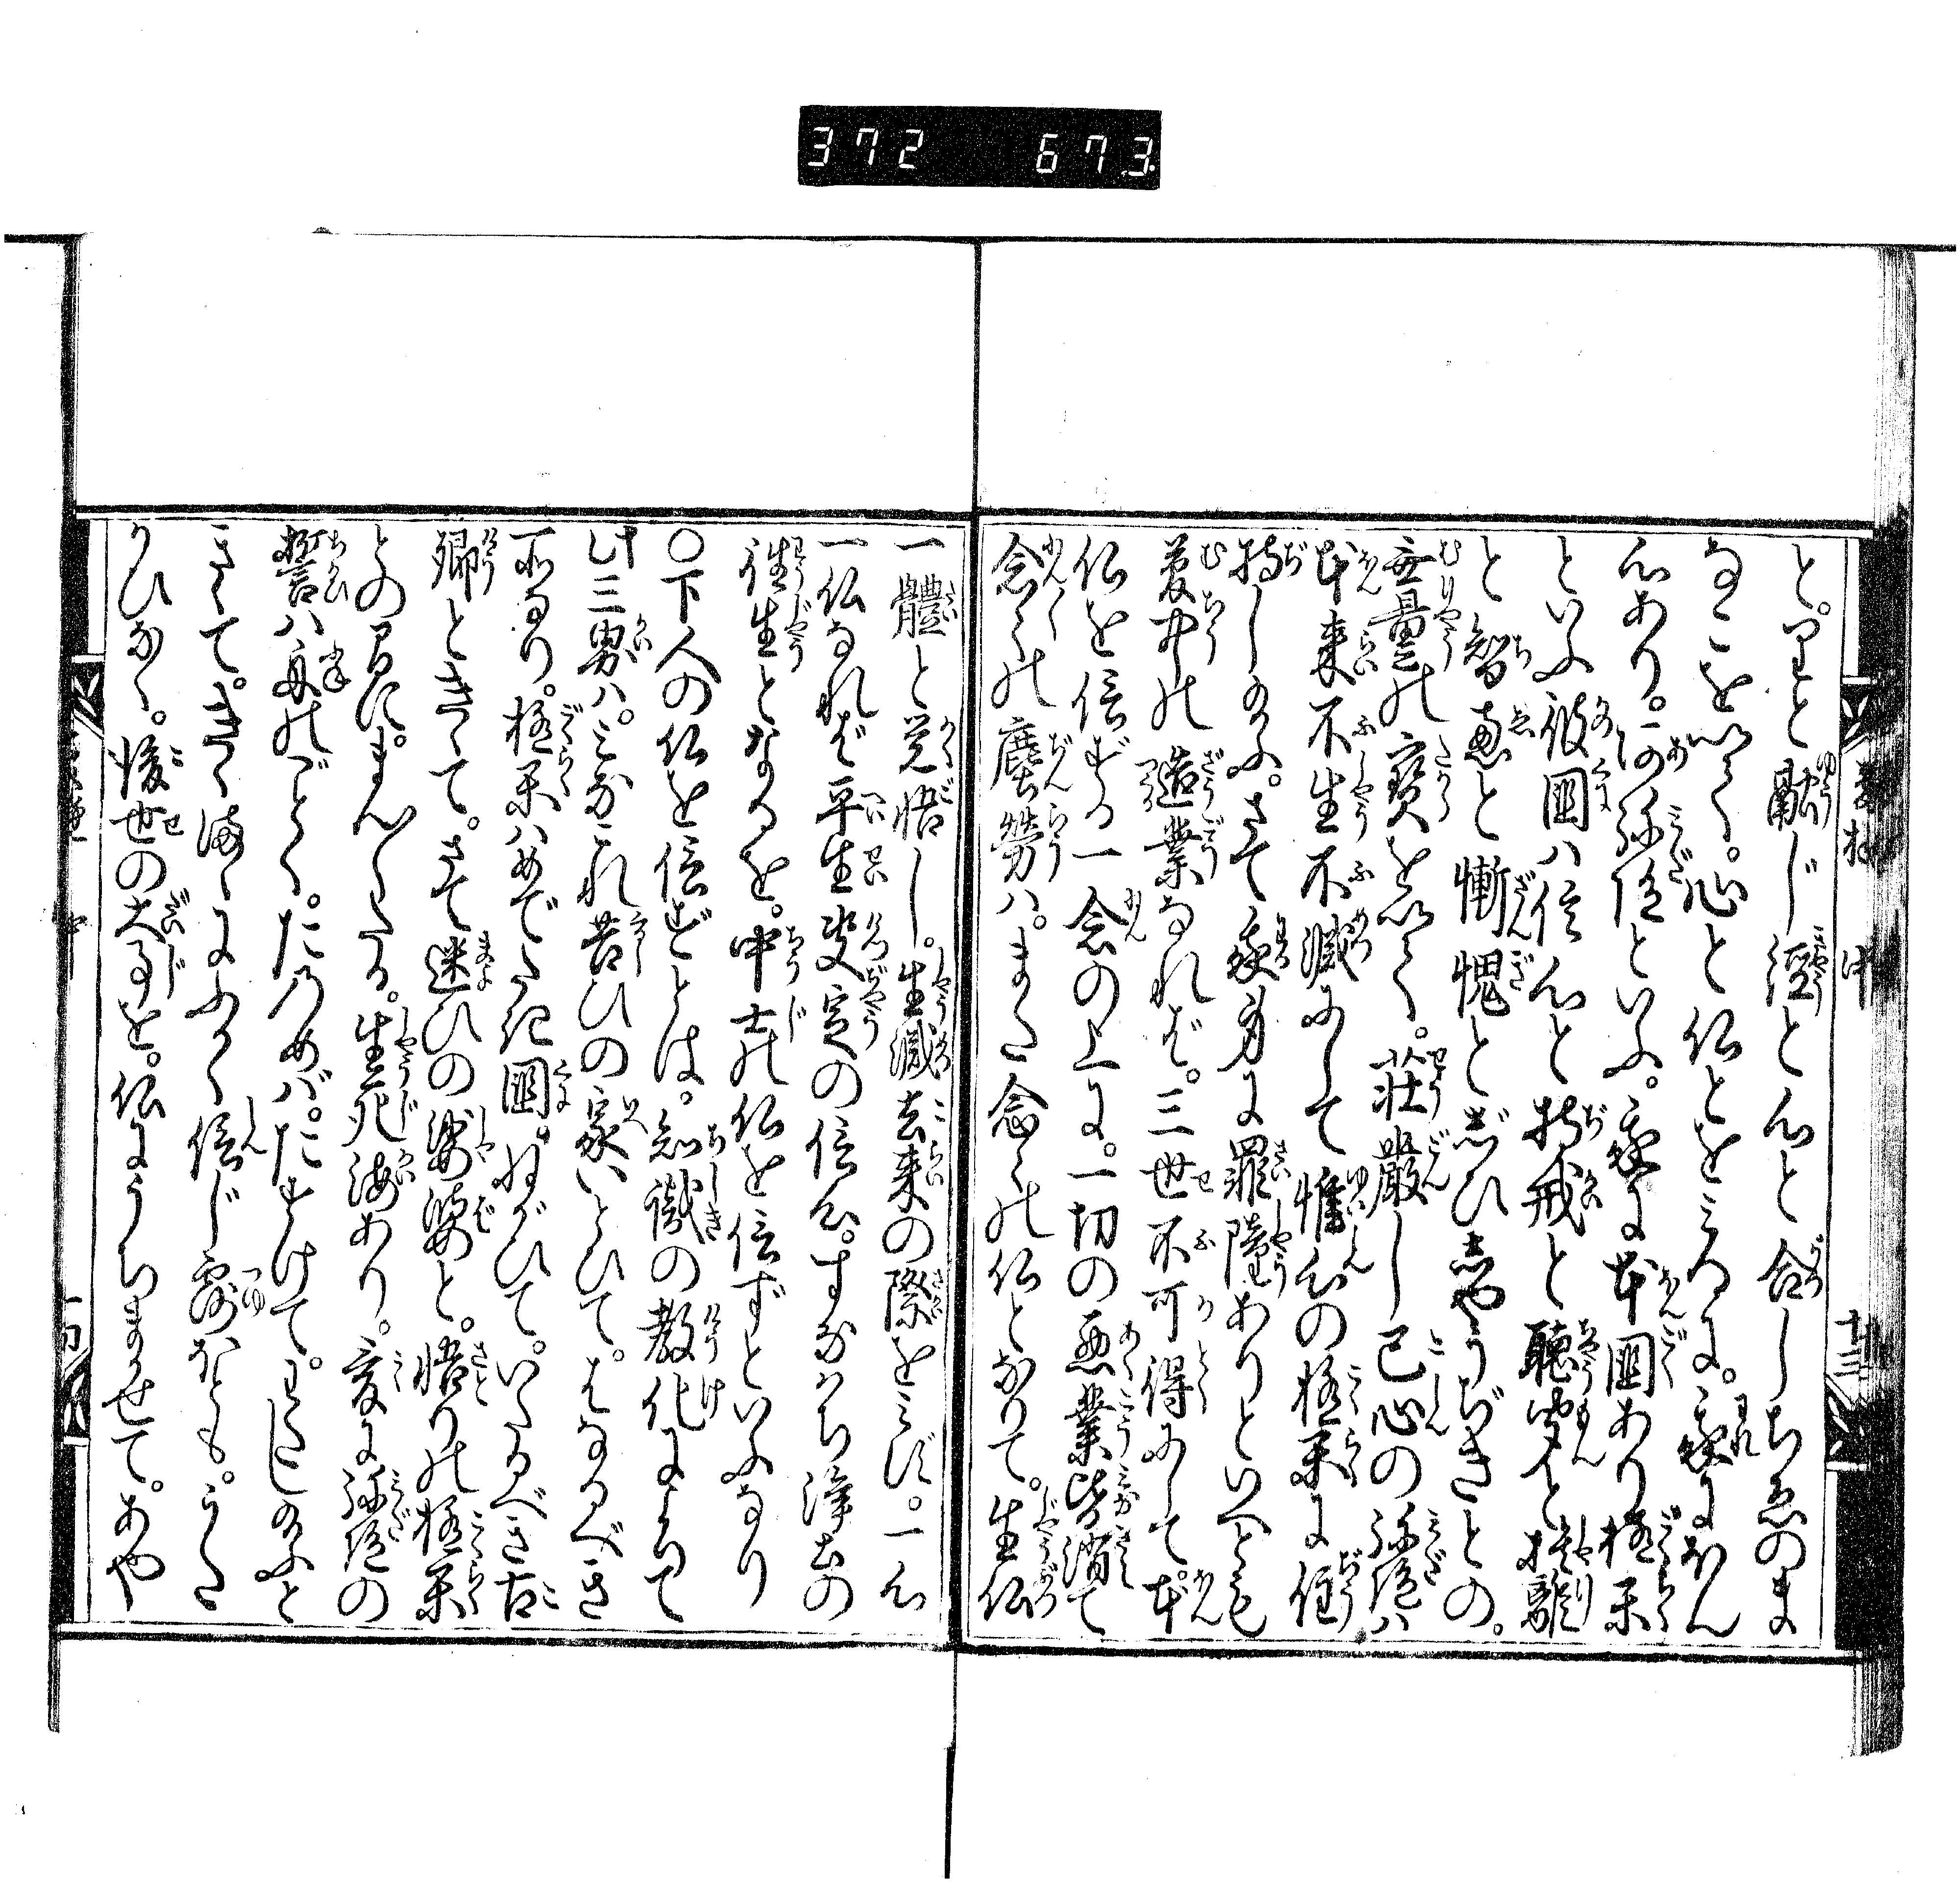 372 673
と。りと融じ経と心と合しちゑのま
なこを以て。心と仏とをみるに。我にほん
心あり。阿弥陀といふ。我に本国あり極楽
といふ彼国ハ信心と持戒と聴聞と捨離
と智恵と慚愧とぢひしやうぢきとの。
無量の宝を以て。荘厳し己心の弥陀ハ
本来不生不滅にして惟心の極楽に住
持し給ふ。さて我身に罪障ありといへども
夢中の造業なれば。三世不可得にして本
仏を信ずる一念の上に。一切の悪業皆消て
念々の塵労ハ。また念々の仏となりて。生仏
一體と覚悟し。生滅去来の際をみず。一心
一仏なれば平生決定の信心。すなハち浄土の
往生となるを。中士の仏を信ずといふなり
〇下人の仏を信ずとは。知識の教化によつて
此三界ハ。みなこれ苦ひの家いとひて。はなるべき
所なり。極楽ハめでたき国。ねがひて。いたるべき古
郷ときゝて。さて迷ひの娑婆と。悟りの極楽
との間に。まん〳〵たる。生死海あり。爰に弥陀の
誓ハ舟のごとく。たのめバ。たすけて。わたし給ふと
きゝて。きくまゝにふかく信じ露ほども。うた
がひなく。後世の大事を。仏にうちまかせて。あや
中
十三